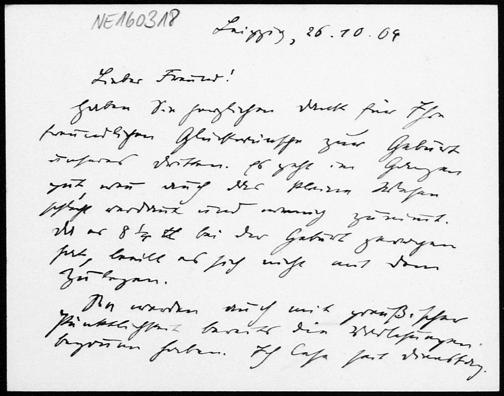 NE160318
Leipzig, 26.10.09
Lieber Freund!
Haben Sie herzlichen Dank für Ihre
freundlichen Glückwünsche zur Geburt
unseres dritten. Es geht im Ganzen
gut, wenn auch das kleine Wesen
schlecht verdaut und wenig zunimmt.
Da es 8 ½ ℔ bei der Geburt gewogen
hat, beeilt es sich nicht mit dem
Zulegen.
Sie werden auch mit preußischer
Pünktlichkeit bereits die Vorlesungen
begonnen haben. Ich lese seit Dienstag.